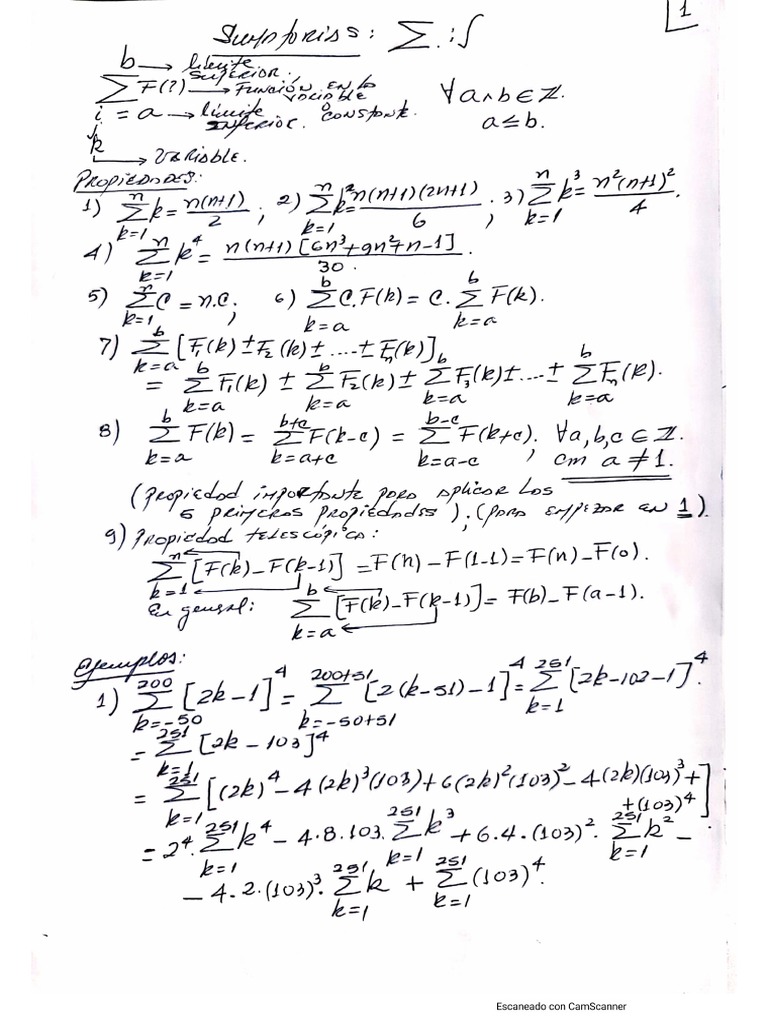 1
Sumatorias: Σ . : ∫
b → límite superior,
Σ F(?) → Función en la variable o constante. ∀ a ∧ b ∈ ℤ.
i = a → límite inferior. a ≤ b.
k
→ Variable.
Propiedades:
1) Σ_{k=1}^{n} k = n(n+1)/2 ; 2) Σ_{k=1}^{n} k² = n(n+1)(2n+1)/6 ; 3) Σ_{k=1}^{n} k³ = n²(n+1)²/4 .
4) Σ_{k=1}^{n} k⁴ = n(n+1)[6n³+9n²+n-1]/30 .
5) Σ_{k=1}^{n} C = n.C. ; 6) Σ_{k=a}^{b} C.F(k) = C. Σ_{k=a}^{b} F(k).
7) Σ_{k=a}^{b} [F₁(k) ± F₂(k) ± .... ± Fₙ(k)]
= Σ_{k=a}^{b} F₁(k) ± Σ_{k=a}^{b} F₂(k) ± Σ_{k=a}^{b} F₃(k) ± ... ± Σ_{k=a}^{b} Fₙ(k).
8) Σ_{k=a}^{b} F(k) = Σ_{k=a+c}^{b+c} F(k-c) = Σ_{k=a-c}^{b-c} F(k+c). , ∀ a,b,c ∈ ℤ.
con a ≠ 1.
(Propiedad importante para aplicar las
5 primeras propiedades), (para empezar en 1).
9) Propiedad telescópica:
Σ_{k=1}^{n} [F(k) - F(k-1)] = F(n) - F(1-1) = F(n) - F(0).
En general: Σ_{k=a}^{b} [F(k) - F(k-1)] = F(b) - F(a-1).
Ejemplos:
1) Σ_{k=-50}^{200} [2k-1]⁴ = Σ_{k=-50+51}^{200+51} [2(k-51)-1]⁴ = Σ_{k=1}^{251} [2k-102-1]⁴.
= Σ_{k=1}^{251} [2k-103]⁴
= Σ_{k=1}^{251} [(2k)⁴ - 4(2k)³(103) + 6(2k)²(103)² - 4(2k)(103)³ +
+(103)⁴]
= 2⁴. Σ_{k=1}^{251} k⁴ - 4.8.103. Σ_{k=1}^{251} k³ + 6.4.(103)². Σ_{k=1}^{251} k² -
- 4.2.(103)³. Σ_{k=1}^{251} k + Σ_{k=1}^{251} (103)⁴.
Escaneado con CamScanner